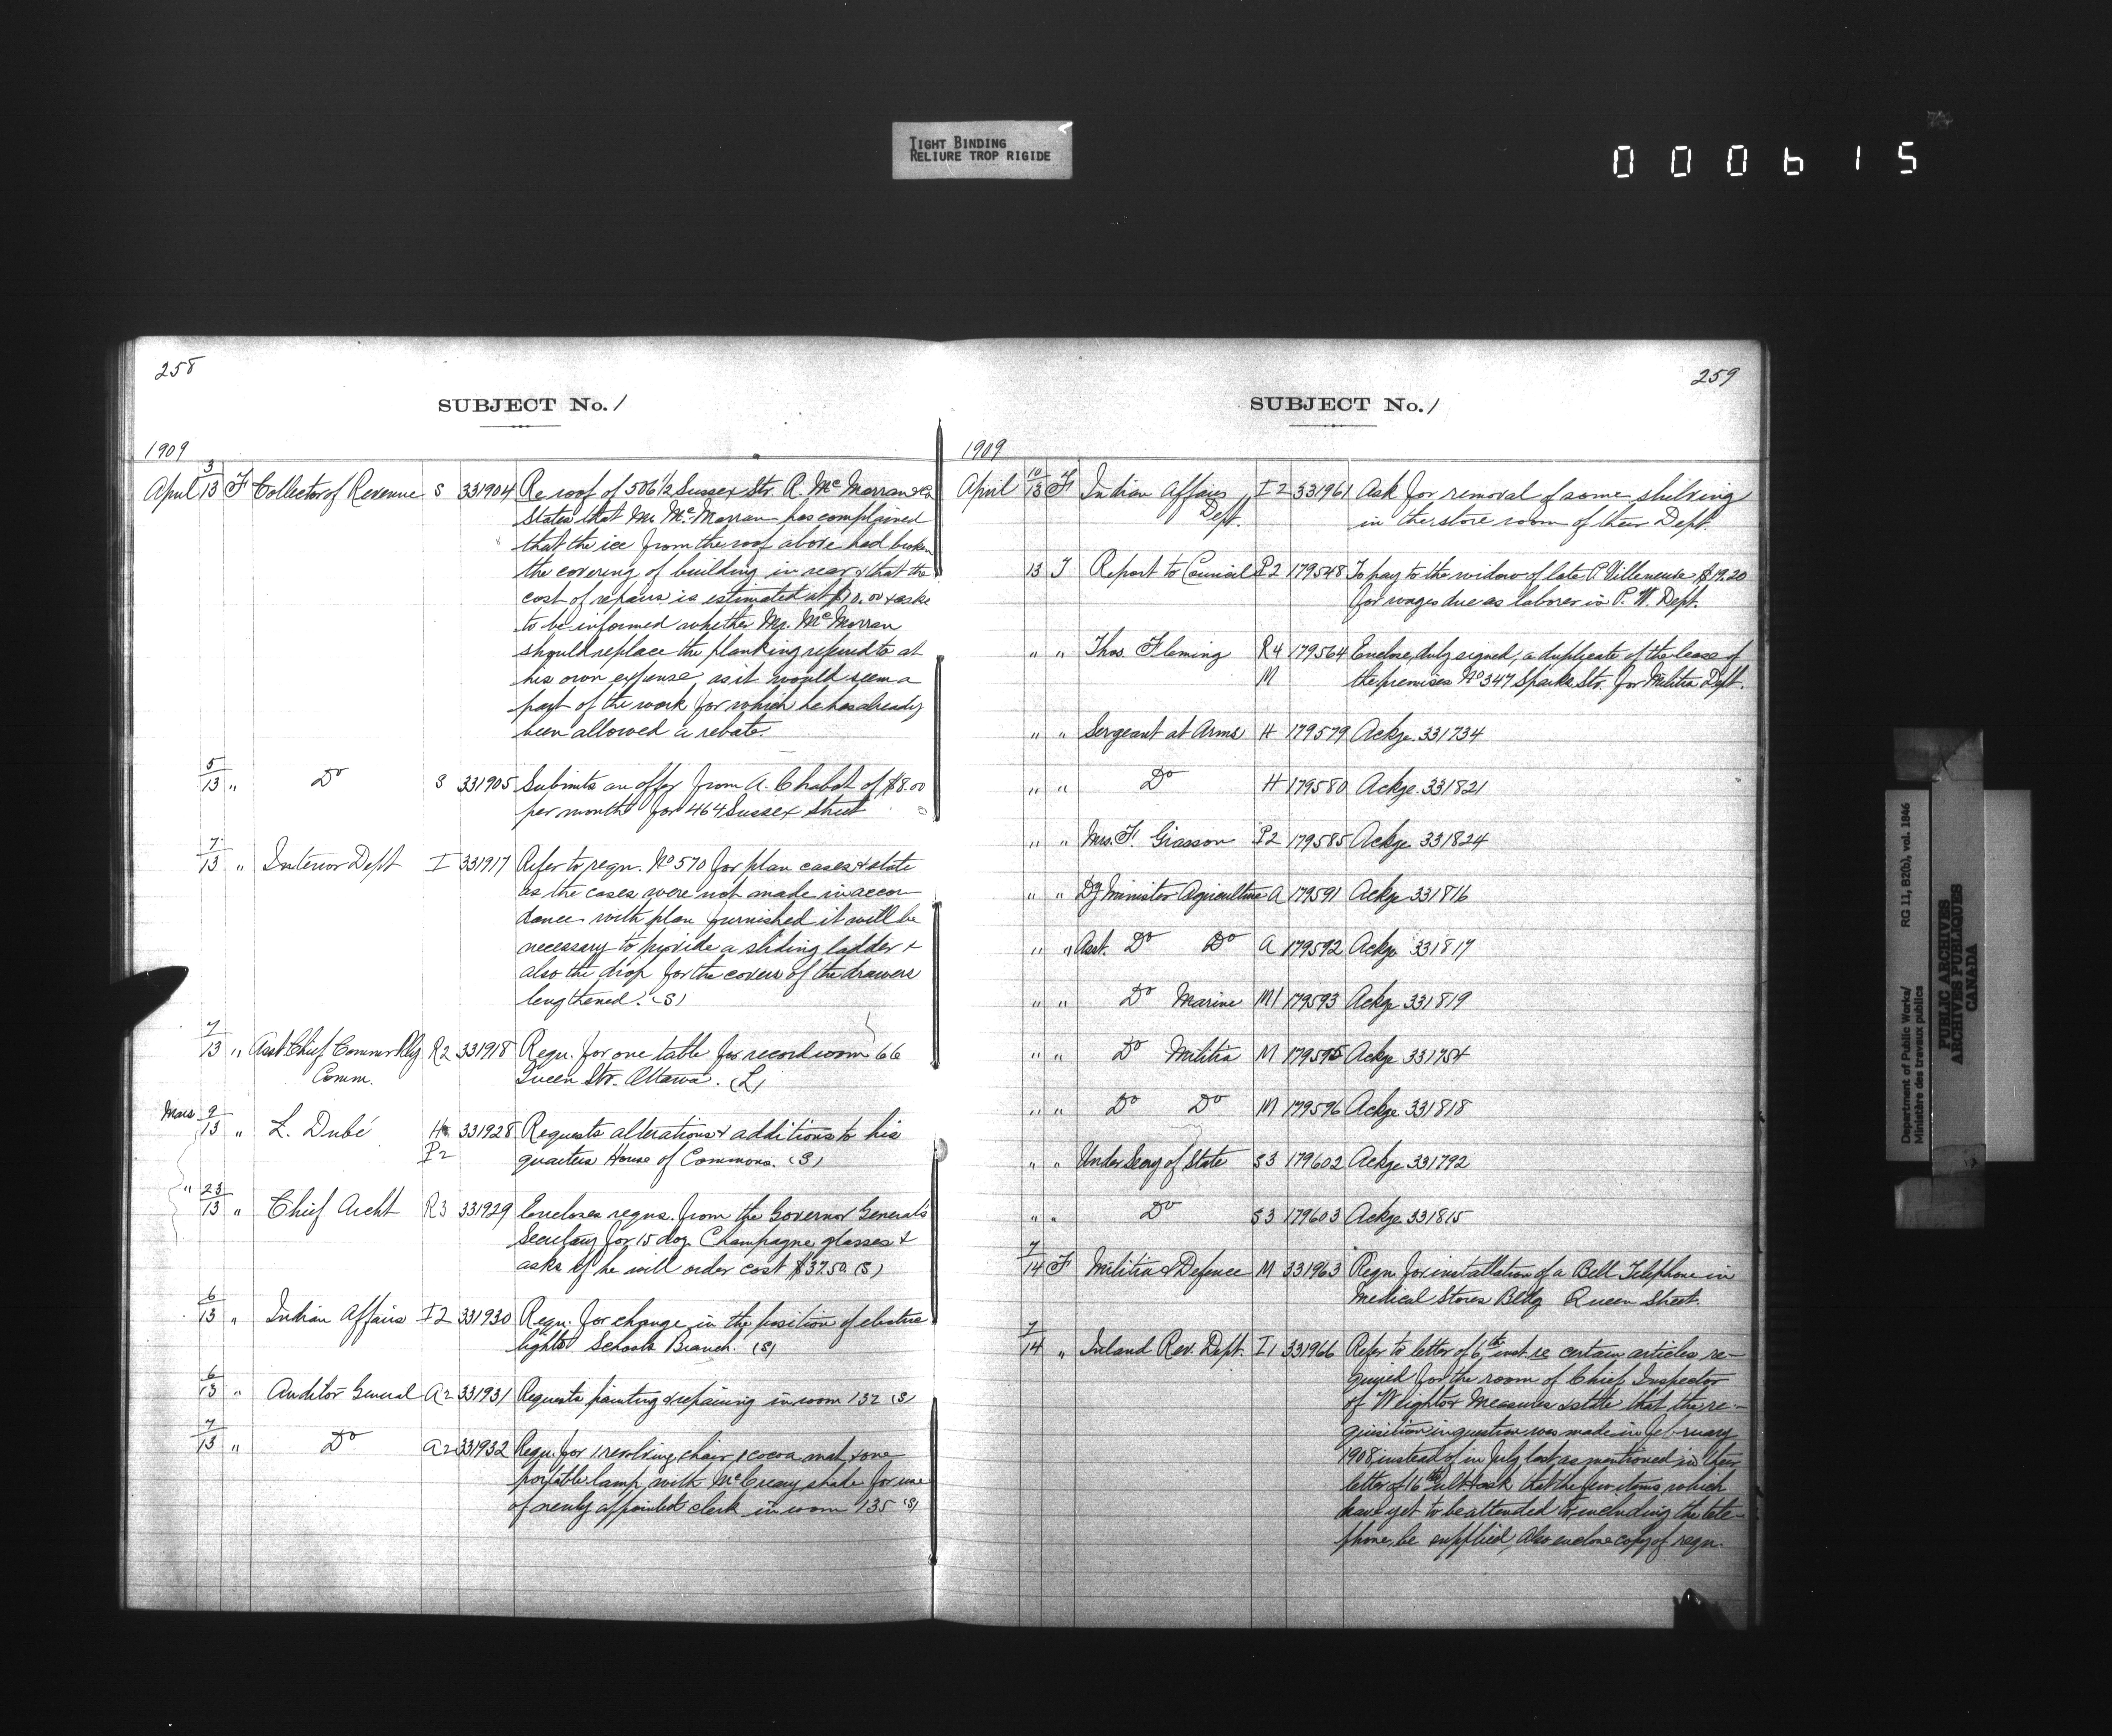 TIGHT BINDING
RELIURE TROP RIGIDE
000615
258
SUBJECT No. 1
1909
April 3/13 F Collector of Revenue S 331904 Re roof of 506 1/2 Sussex Str. R. McMorran
states that Mr. McMorran has complained
that the ice from the roof above had broken
the covering of building in rear & that the
cost of repairs is estimated at $10.00 & asks
to be informed whether Mr. McMorran
should replace the planking referred to at
his own expense, as it would seem a
part of the work for which he has already
been allowed a rebate.
5/13 " Do S 331905 Submits an offer from A. Chabot of $8.00
per month for 464 Sussex Street
7/13 " Interior Dept I 331917 Refer to reqn. No 570 for plan cases & state
as the cases were not made in accor
dance with plan furnished it will be
necessary to provide a sliding ladder &
also the drop for the covers of the drawers
lengthened. (S)
7/13 " Asst Chief Commr Rly R2 331918 Reqn. for one table for record room 66
Comm. Queen Str. Ottawa. (L)
Mars 9/13 " L. Dubé H 331928 Requests alterations & additions to his
P2 quarters House of Commons. (S)
" 23/13 " Chief Archt R3 331929 Encloses reqns. from the Governor General's
Secretary for 15 doz. Champagne glasses &
asks if he will order cost $37.50 (S)
6/13 " Indian Affairs I2 331930 Reqn. for change in the position of electric
lights Schools Branch. (S)
6/13 " Auditor General A2 331931 Requests painting & repairing in room 132 (S)
7/13 " Do A2 331932 Reqn. for 1 revolving chair, 1 cocoa mat, & one
portable lamp with McCreary shade for use
of newly appointed clerk in room 135 (S)
259
SUBJECT No. 1
1909
April 10/13 F Indian Affairs I2 331961 Ask for removal of some shelving
Dept. in the store room of their Dept.
13 J Report to Council P2 179548 To pay to the widow of late P. Villeneuve $19.20
for wages due as laborer in P. W. Dept.
" " Thos. Fleming R4 179564 Enclose, duly signed, a duplicate of the lease of
M the premises No 347 Sparks Str. for Militia Dept.
" " Sergeant at Arms H 179579 Ackge. 331734
" " Do H 179580 Ackge. 331821
" " Mrs. F. Giasson P2 179585 Ackge 331824
" " Dy Minister Agriculture A 179591 Ackge 331816
" " Asst. Do Do A 179592 Ackge 331817
" " Do Marine M1 179593 Ackge 331819
" " Do Militia M 179595 Ackge 331754
" " Do Do M 179596 Ackge 331818
" " Under Secry of State S3 179602 Ackge 331792
" " Do S3 179603 Ackge 331815
7/14 F Militia & Defence M 331963 Reqn. for installation of a Bell Telephone in
Medical Stores Bldg Queen Street.
7/14 " Inland Rev. Dept. I1 331966 Refer to letter of 6th inst. re certain articles re-
quired for the room of Chief Inspector
of Weights & Measures & state that the re-
quisition in question was made in February
1908, instead of in July last, as mentioned in their
letter of 16th ult & ask that the few items which
have yet to be attended to including the tele-
phone, be supplied, Also enclose copy of reqn.
Department of Public Works/ RG 11, B2(b), vol. 1846
Ministère des travaux publics
PUBLIC ARCHIVES
ARCHIVES PUBLIQUES
CANADA